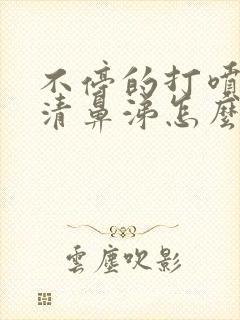 不停的打噴
清鼻涕怎麽
雲塵吹影